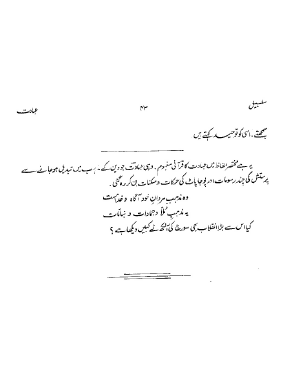 سلسبیل ۴۳ عبادت
سمجھتے۔ اسی کو توحید کہتے ہیں
یہ ہے مختصر الفاظ میں عبادت کا قرآنی مفہوم۔ وہی عبادت جو دین کے مذہب میں تبدیل ہو جانے سے
پرستش کی چند رسومات اور پوجا پاٹ کی حرکات و سکنات بن کر رہ گئی۔
وہ مذہبِ مردانِ خود آگاہ و خدا مست
یہ مذہبِ مُلّا و جمادات و نباتات
کیا اس سے بڑا انقلاب بھی سورج کی آنکھ نے کہیں دیکھا ہے؟